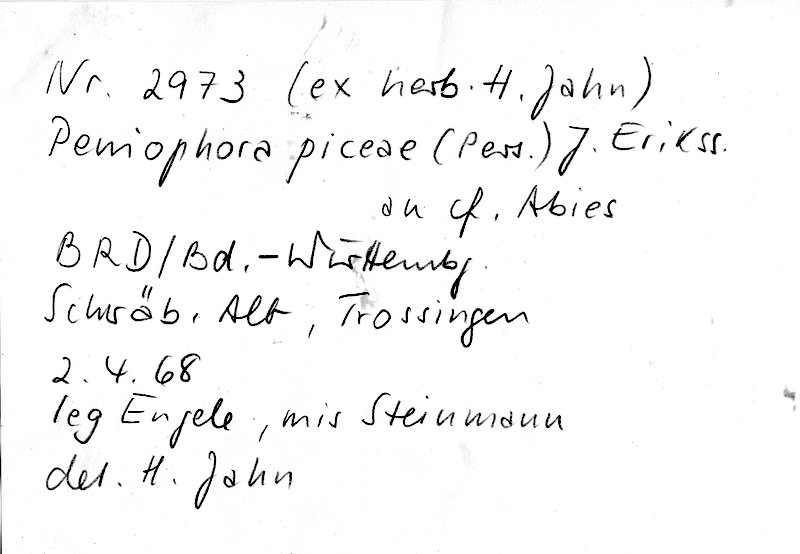 Nr. 2973 (ex herb. H. Jahn)
Peniophora piceae (Pers.) J. Erikss.
an cf. Abies
BRD/Bd.-Württembg.
Schwäb. Alb, Trossingen
2.4.68
leg Engele, mis Steinmann
det. H. Jahn